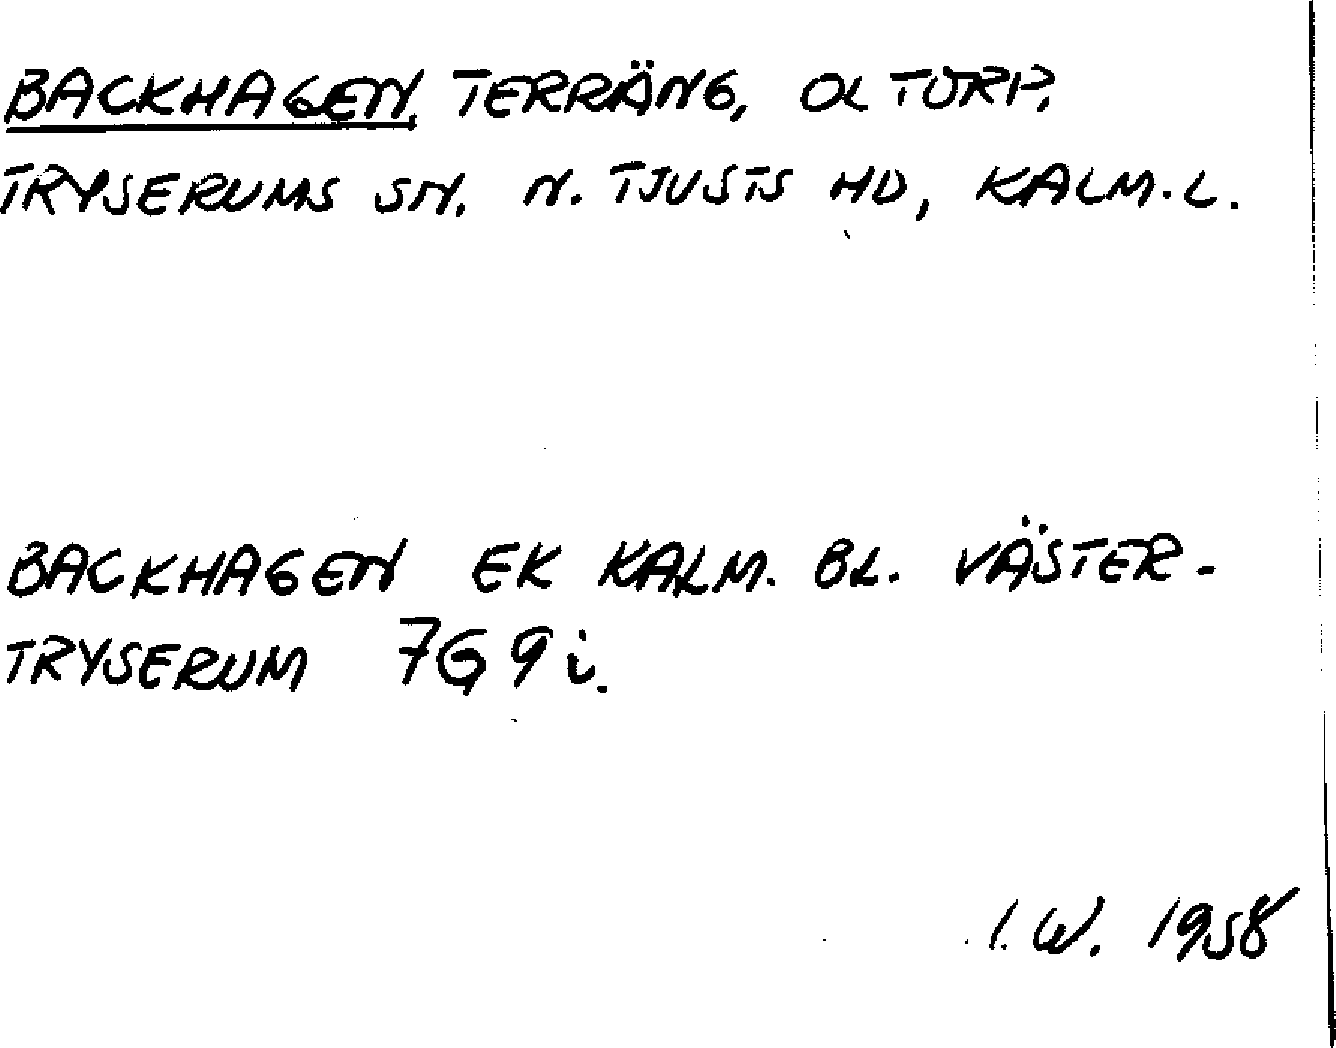 BACKHAGEN, TERRÄNG, OL TORP.
TRYSERUMS SN. N. TJUSTS HD, KALM. L.
BACKHAGEN EK KALM. BL. VÄSTER-
TRYSERUM 7G 9i.
I. W. 1958